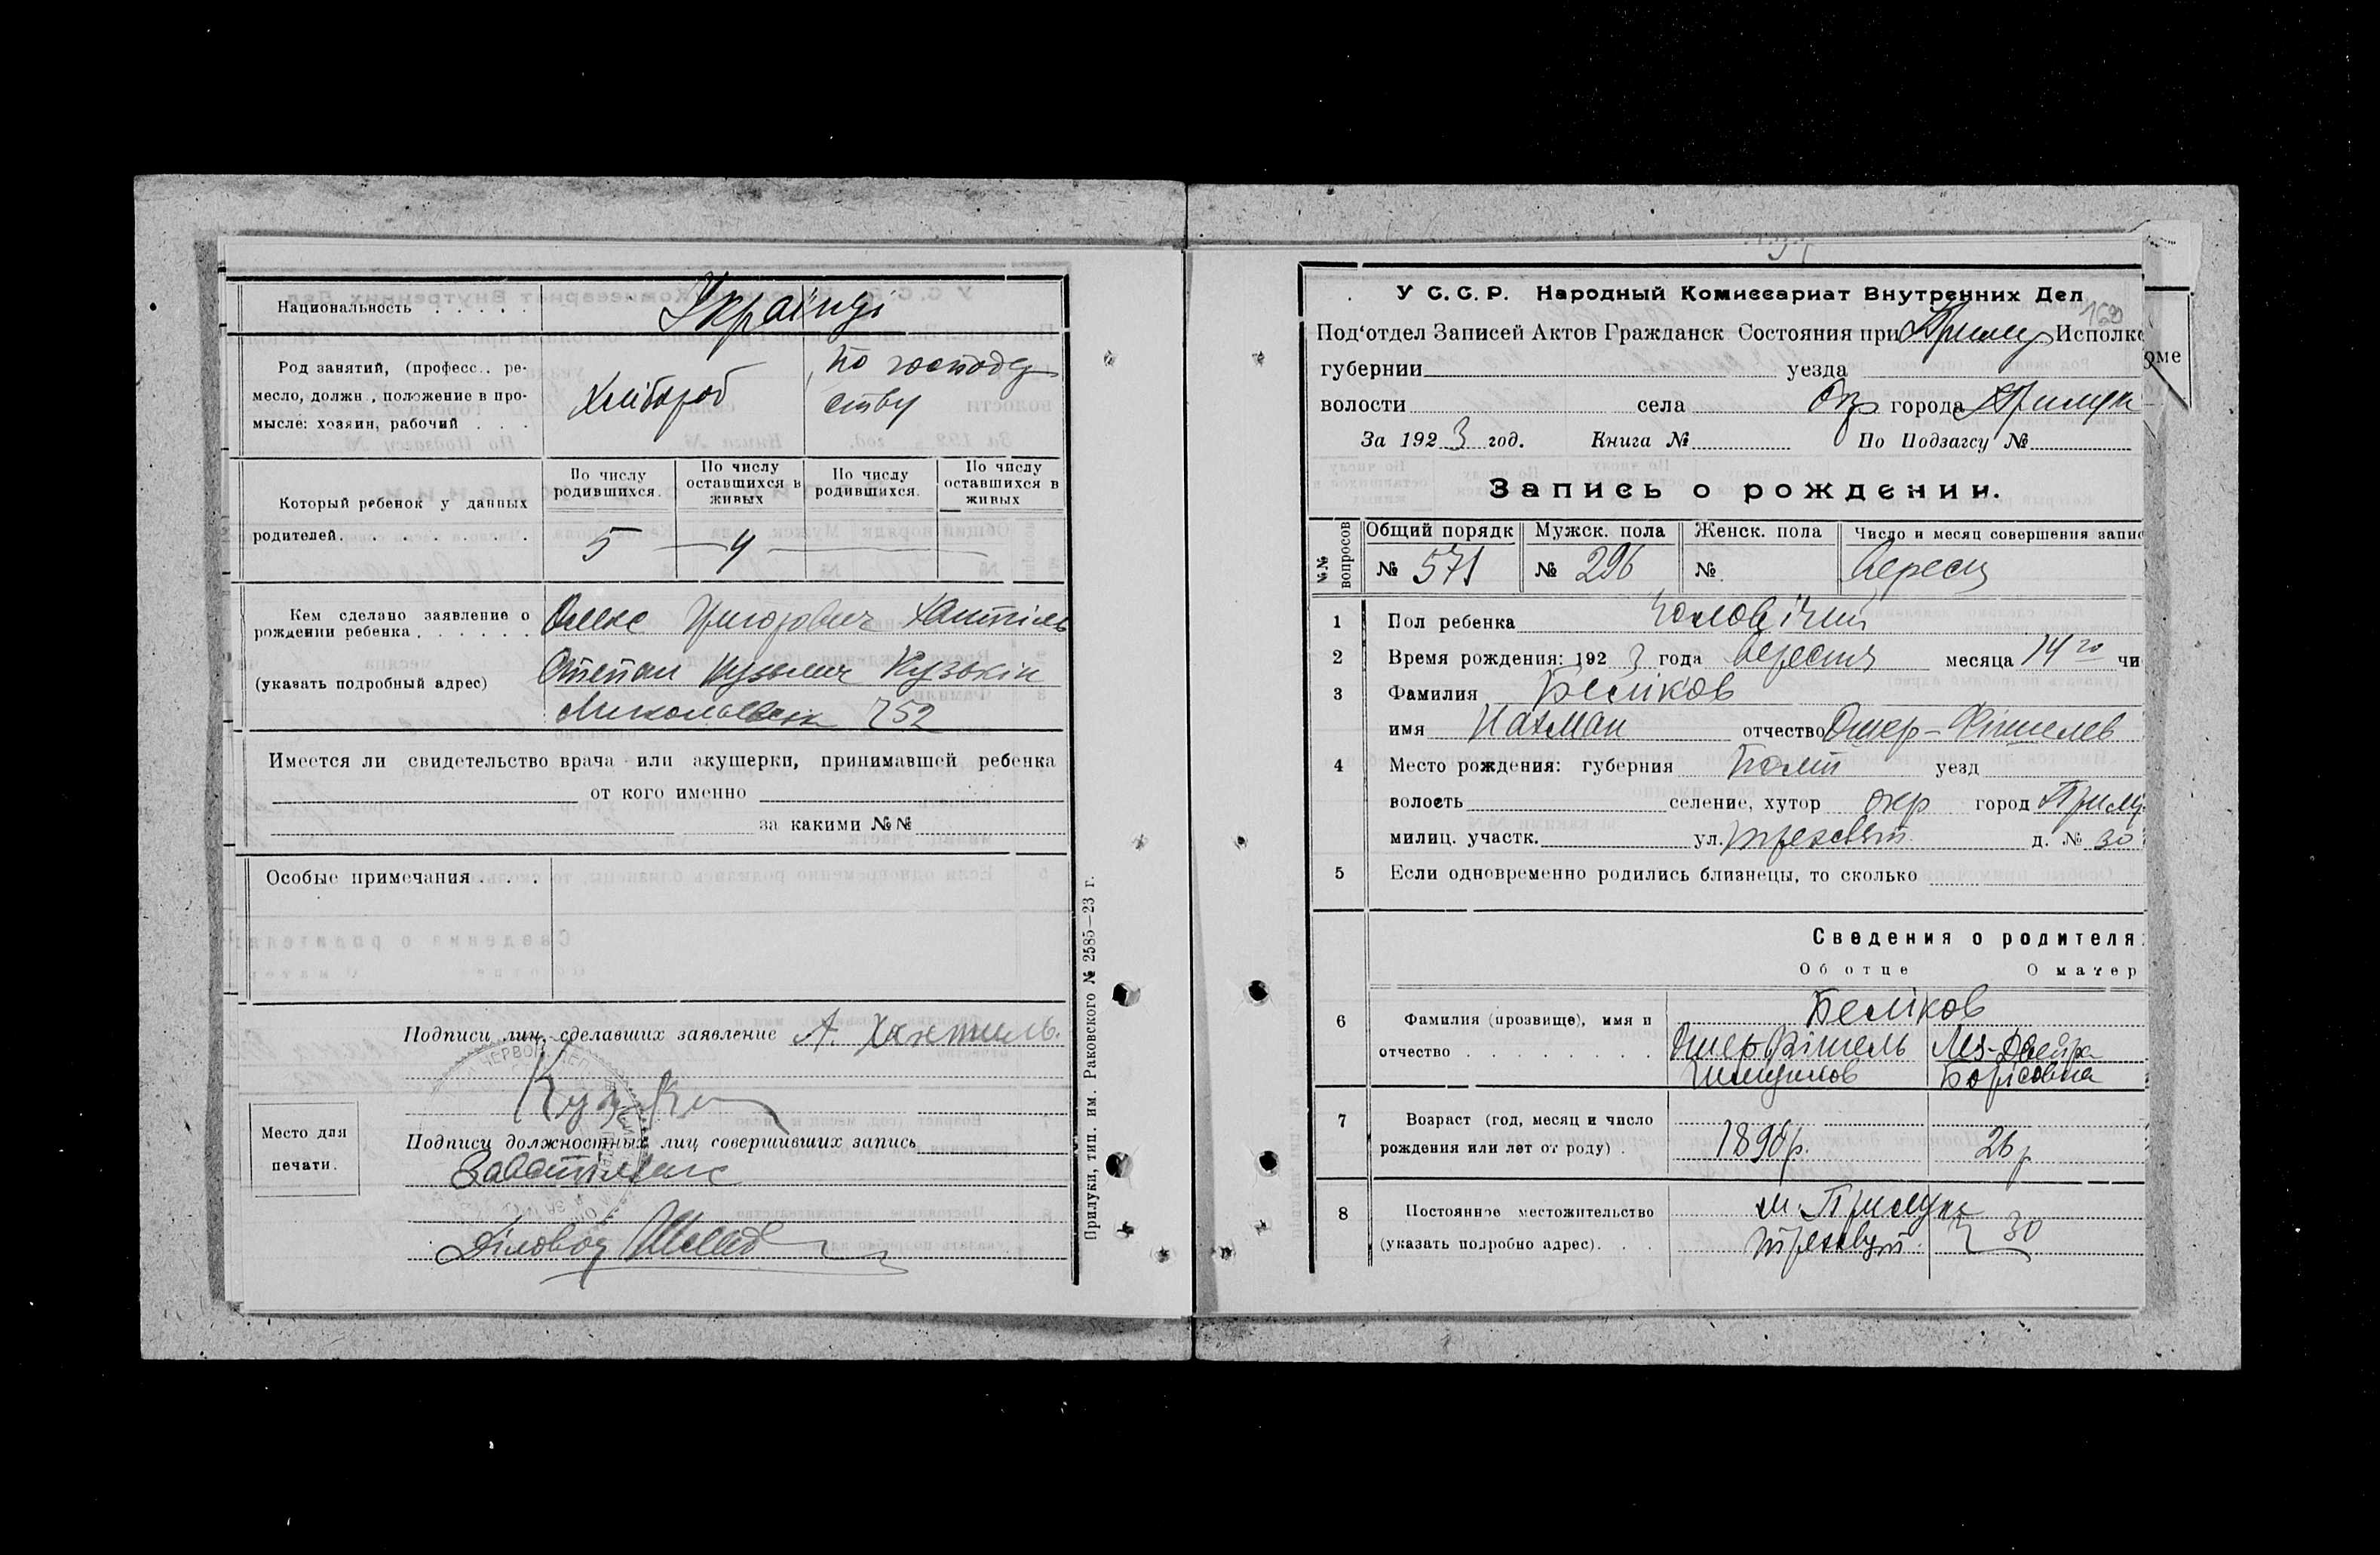 Национальность . . . . . Українці
Род занятий, (професс.. ре-
месло, должн., положение в про-
мысле: хозяин, рабочий . . .
Хлібороб
по господар
ству
Который ребенок у данных
родителей. . . . . . .
По числу родившихся.
По числу оставшихся в живых
По числу родившихся.
По числу оставшихся в живых
5 — 4 —
Кем сделано заявление о
рождении ребенка . . . . . .
(указать подробный адрес)
Олекс Григорович
Степан Кузьмич Кузькін
252
Имеется ли свидетельство врача или акушерки, принимавшей ребенка
от кого именно
за какими №№
Особые примечания . . .
Подписи лиц, сделавших заявление А. Хантиль.
Место для
печати.
Подписи должностных лиц совершивших запись
Діловод
Прилуки, тип. им. Раковского № 2585—23 г.
160
У С. С. Р. Народный Комиссариат Внутренних Дел
Под‘отдел Записей Актов Гражданск Состояния при Прилуц Исполко
оме
губернии уезда
волости села Окр города Прилук
За 1923 год. Книга № По Подзагсу №
Запись о рождении.
№№ вопросов
Общий порядк Мужск. пола Женск. пола Число и месяц совершения запис
№ 571 № 296 № Вересн
1 Пол ребенка чоловічий
2 Время рождения: 1923 года Вересня месяца 14го чи
3 Фамилия Беліков
имя Нахман отчество Ошер-Фішелев
4 Место рождения: губерния Полт уезд
волость селение, хутор окр город Прилу
милиц. участк. ул. Трехсвят. д. № 30
5 Если одновременно родились близнецы, то сколько
Сведения о родителя
Об отце О матер
6 Фамилия (прозвище), имя и
отчество . . . . . . . .
Беліков
Ошер Фішель Лея-Двейра
Борісовна
7 Возраст (год, месяц и число
рождения или лет от роду) .
1890р. 26р
8 Постоянное местожительство
(указать подробно адрес). . .
м. Прилуки
Трехсвят. 30